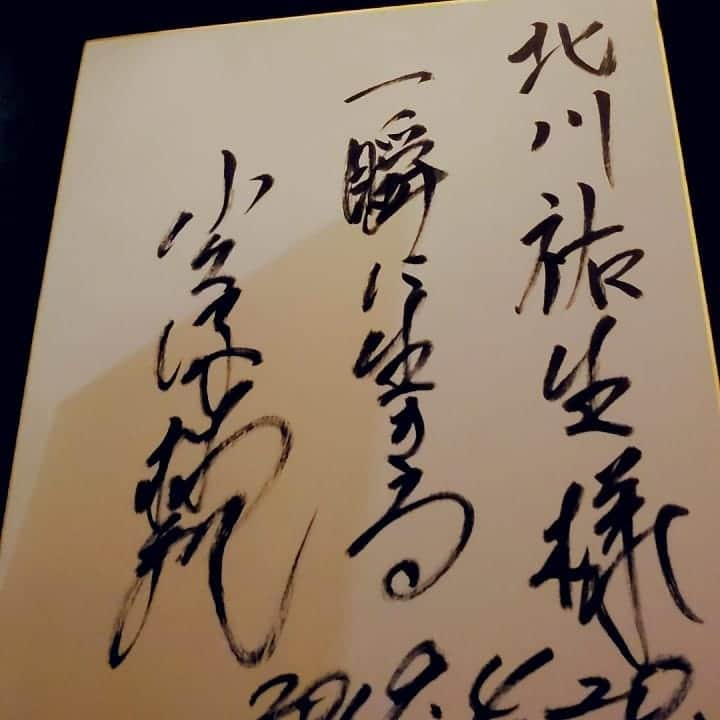 北川祐生様
一瞬に生きる
小久保
2019.4.20.